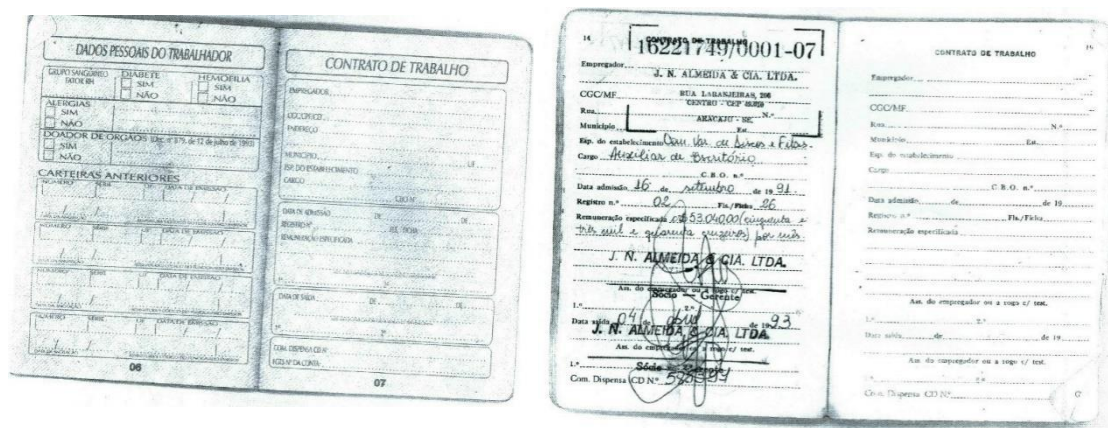 DADOS PESSOAIS DO TRABALHADOR
GRUPO SANGUÍNEO
FATOR RH
DIABETE
SIM
NÃO
HEMOFILIA
SIM
NÃO
ALERGIAS
SIM
NÃO
DOADOR DE ÓRGÃOS (Dec. nº 879, de 12 de julho de 1993)
SIM
NÃO
CARTEIRAS ANTERIORES
NÚMERO SÉRIE UF DATA DE EMISSÃO
NÚMERO SÉRIE UF DATA DE EMISSÃO
NÚMERO SÉRIE UF DATA DE EMISSÃO
NÚMERO SÉRIE UF DATA DE EMISSÃO
06
CONTRATO DE TRABALHO
EMPREGADOR
CGC/CPF/CEI
ENDEREÇO
MUNICÍPIO UF
ESP. DO ESTABELECIMENTO
CARGO
CBO Nº
DATA DE ADMISSÃO DE DE
REGISTRO Nº FLS./FICHA
REMUNERAÇÃO ESPECIFICADA
1º 2º
DATA DE SAÍDA DE DE
1º 2º
COM. DISPENSA CD Nº
FGTS Nº DA CONTA
07
14 CONTRATO DE TRABALHO
16221749/0001-07
Empregador
J. N. ALMEIDA & CIA. LTDA.
CGC/MF RUA LARANJEIRAS, 206
CENTRO - CEP
Rua N.º
ARACAJU - SE.
Município Est.
Esp. do estabelecimento Com. Var. de Discos e Fitas.
Cargo Auxiliar de Escritório
C.B.O. n.º
Data admissão 16 de setembro de 1991.
Registro n.º 02 Fls./Ficha 26
Remuneração especificada cr$ 53.040,00 (cinquenta e
três mil e quarenta cruzeiros) por mês
J. N. ALMEIDA & CIA. LTDA.
Ass. do empregador ou a rogo c/ test.
Sócio — Gerente
1.º 2.º
Data saída 04 de de 1993
J. N. ALMEIDA & CIA. LTDA.
Ass. do empregador ou a rogo c/ test.
1.º Sócio — Gerente
Com. Dispensa CD N.º
CONTRATO DE TRABALHO
Empregador
CGC/MF
Rua N.º
Município Est.
Esp. do estabelecimento
Cargo
C.B.O. n.º
Data admissão de de 19
Registro n.º Fls./Ficha
Remuneração especificada
Ass. do empregador ou a rogo c/ test.
1.º 2.º
Data saída de de 19
Ass. do empregador ou a rogo c/ test.
1.º 2.º
Com. Dispensa CD N.º